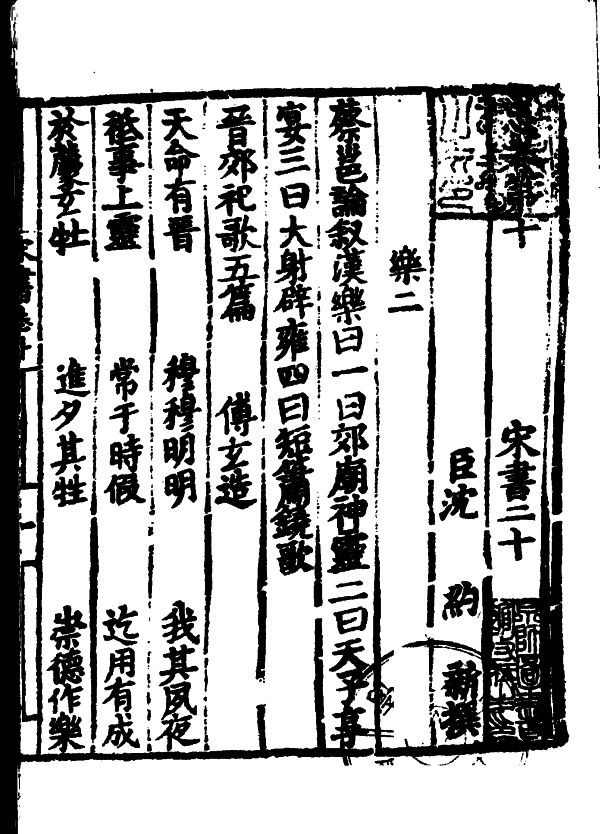 志卷第十　宋書二十
臣沈　約　新撰
樂二
蔡邕論叙漢樂曰一曰郊廟神靈二曰天子享
宴三曰大射辟雍四曰短簫鐃歌
晉郊祀歌五篇　傅玄造
天命有晉　穆穆明明　我其夙夜
祗事上靈　常于時假　迄用有成
於薦玄牡　進夕其牲　崇德作樂